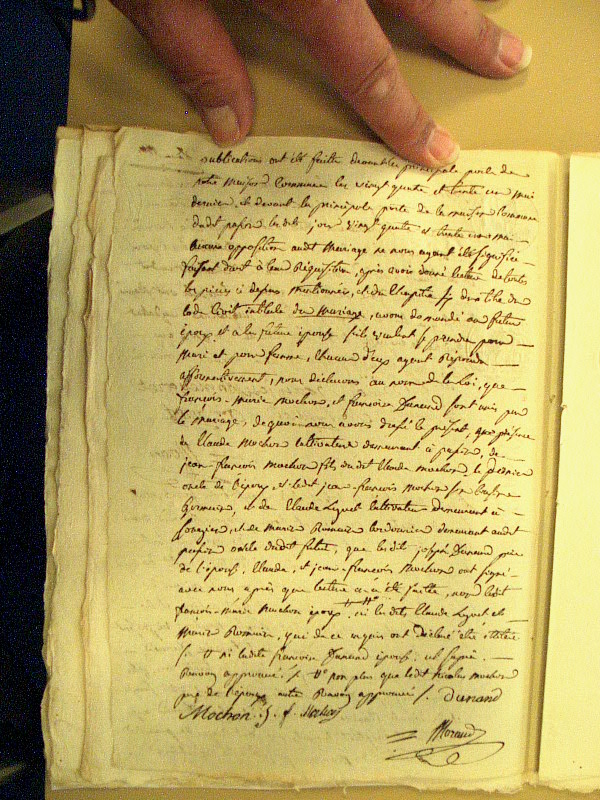 publications ont été faitte devant la principale porte de
notre maison Commune les vingt quatre et trente un mai
dernier, et devant la principale porte de la maison Commune
dudit les dits jour vingt quatre et trente un mai
aucune opposition audit Mariage ne nous ayant été signifiée
faisant droit à leur Réquisition, après avoir donné lecture de toutes
les pièces ci dessus mentionnées, et du Chapitre du titre du
Code Civil intitulé du Mariage, avons demandé au futur
époux et à la future épouse s'ils veulent se prendre pour
Mari et pour femme, chacun d'eux ayant Répondu
affirmativement, nous déclarons au nom de la Loi, que
françois-marie mochon, et françoise Dunand sont unis par
le mariage, de quoi nous avons dressé le présent, en présence
de Claude Mochon Cultivateur demeurant à de
jean-françois mochon fils dudit Claude mochon le dernier
oncle de l'époux, et ledit jean-françois Mochon son Cousin
Germain, et de Claude Cultivateur demeurant à
et de Marie demeurant audit
oncle dudit futur, que ledit joseph Dunand père
de l'épouse, Claude, et jean-françois Mochon ont signé
avec nous après que lecture a été faitte, non ledit
françois-marie Mochon époux, ni lesdits Claude et
Marie qui de ce requis ont déclaré être
ni ladite françoise Dunand épouse
Renvoi approuvé non plus que ledit Nicolas mochon
père de l'époux autre Renvoi approuvé Dunand
Mochon j. f. Mochon
Morand